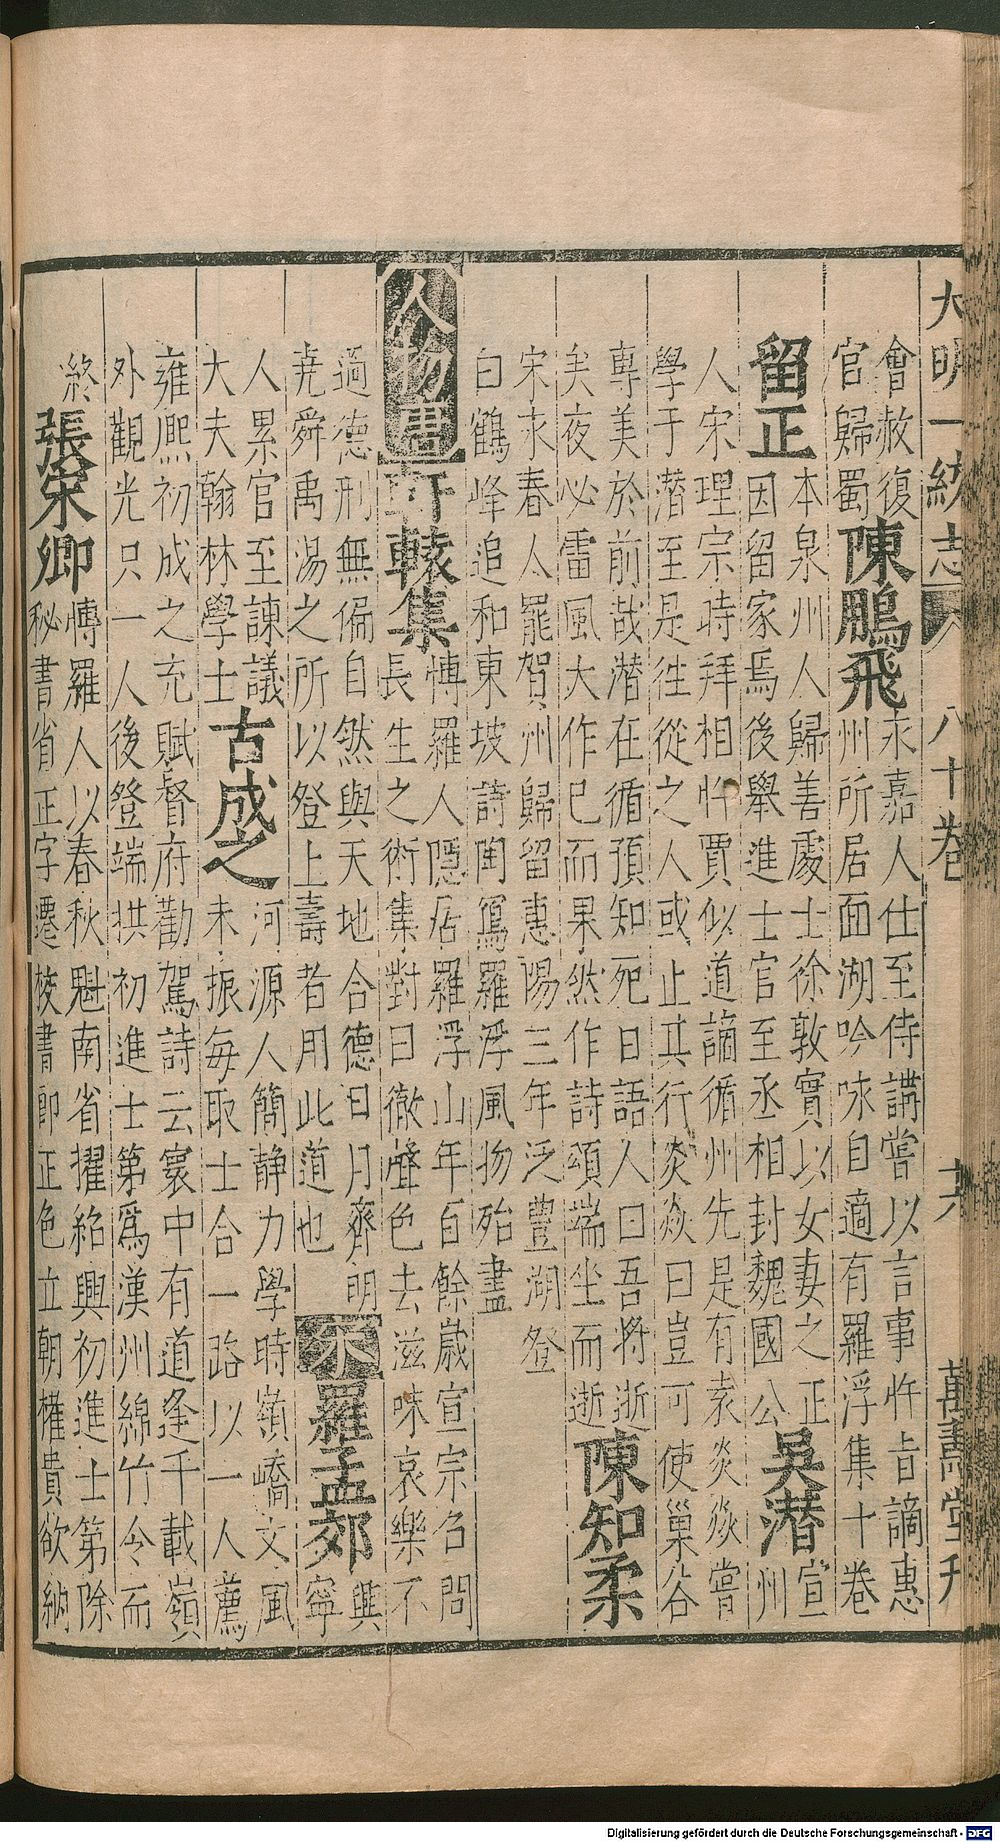 大明一統志 八十卷 十六 萬壽堂刊
會赦復
官歸蜀
陳鵬飛
永嘉人仕至侍講嘗以言事忤旨謫惠
州所居面湖吟咏自適有羅浮集十卷
留正
本泉州人歸善處士徐敦實以女妻之正
因留家焉後舉進士官至丞相封魏國公
吳潛
宣
州
人宋理宗時拜相忤賈似道謫循州先是有袁炎焱嘗
學于潛至是徃從之人或止其行炎焱曰豈可使巢谷
專美於前哉潛在循預知死日語人曰吾將逝
矣夜必雷風大作已而果然作詩頌端坐而逝
陳知柔
宋永春人罷賀州歸留惠陽三年泛豐湖登
白鶴峰追和東坡詩陶寫羅浮風物殆盡
人物
軒轅集
博羅人隱居羅浮山年百餘歲宣宗召問
長生之術集對曰徹聲色去滋味哀樂不
過德刑無偏自然與天地合德日月齊明
堯舜禹湯之所以登上壽者用此道也
宋
羅孟郊
興
寧
人累官至諫議
大夫翰林學士
古成之
河源人簡静力學時嶺嶠文風
未振每取士合一路以一人薦
雍熙初成之充賦督府勸駕詩云寰中有道逢千載嶺
外觀光只一人後登端拱初進士第爲漢州綿竹令而
終
張宋卿
博羅人以春秋魁南省擢紹興初進士第除
秘書省正字遷校書郎正色立朝權貴欲納